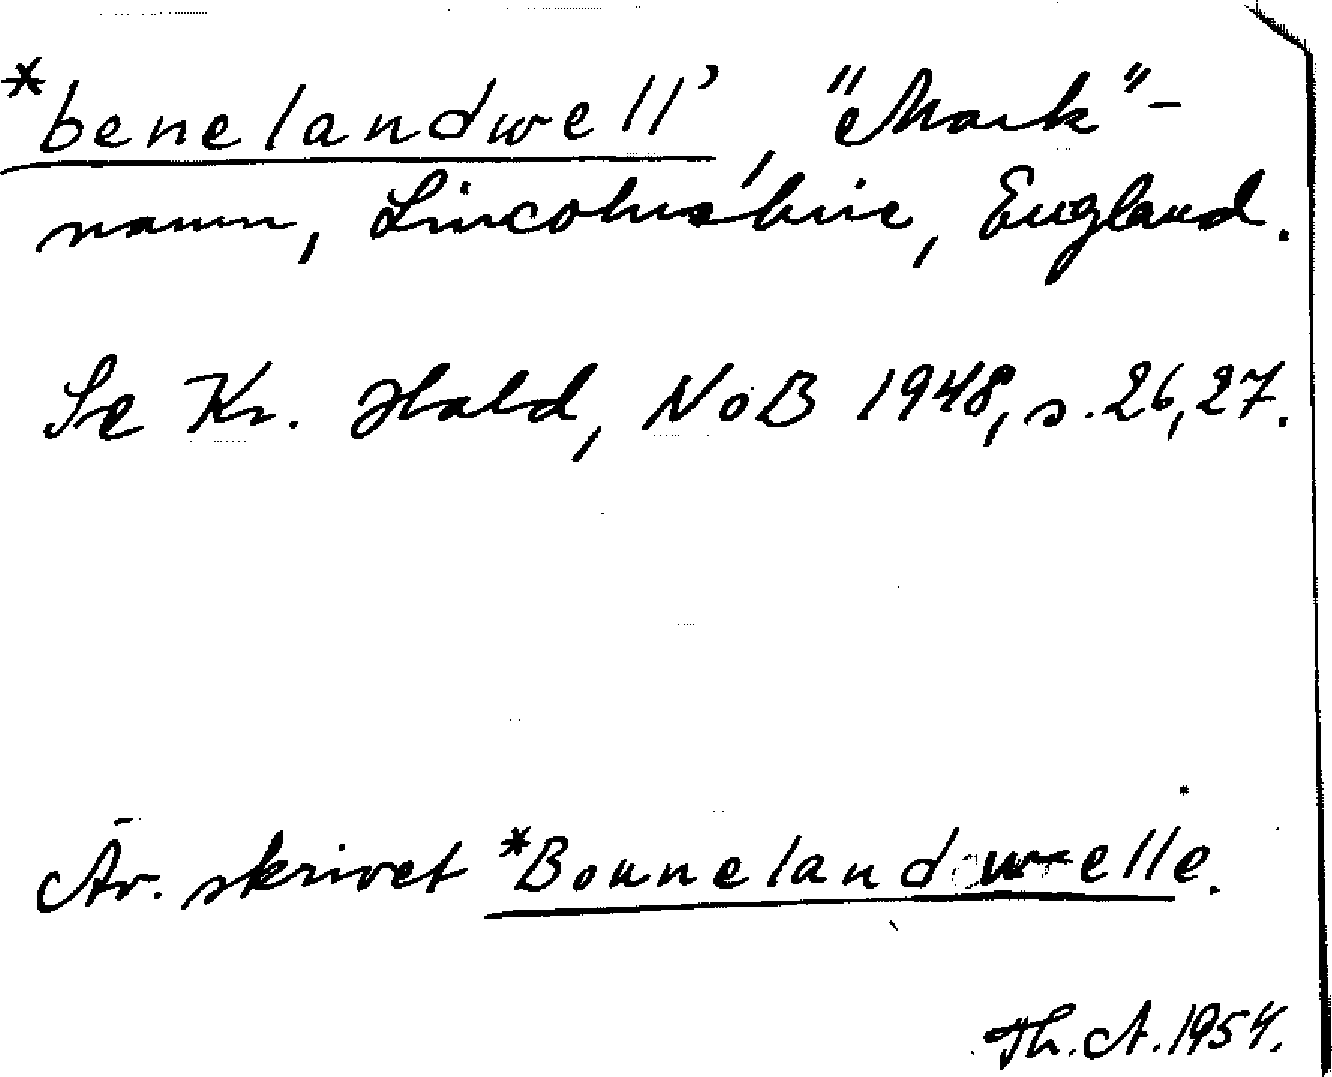 *benelandwell’, "Mark"-
namn, Lincolnshire, England.
Se Kr. Hald, NoB 1948, s. 26, 27.
Äv. skrivet *Bounelandwelle.
Th. A. 1954.